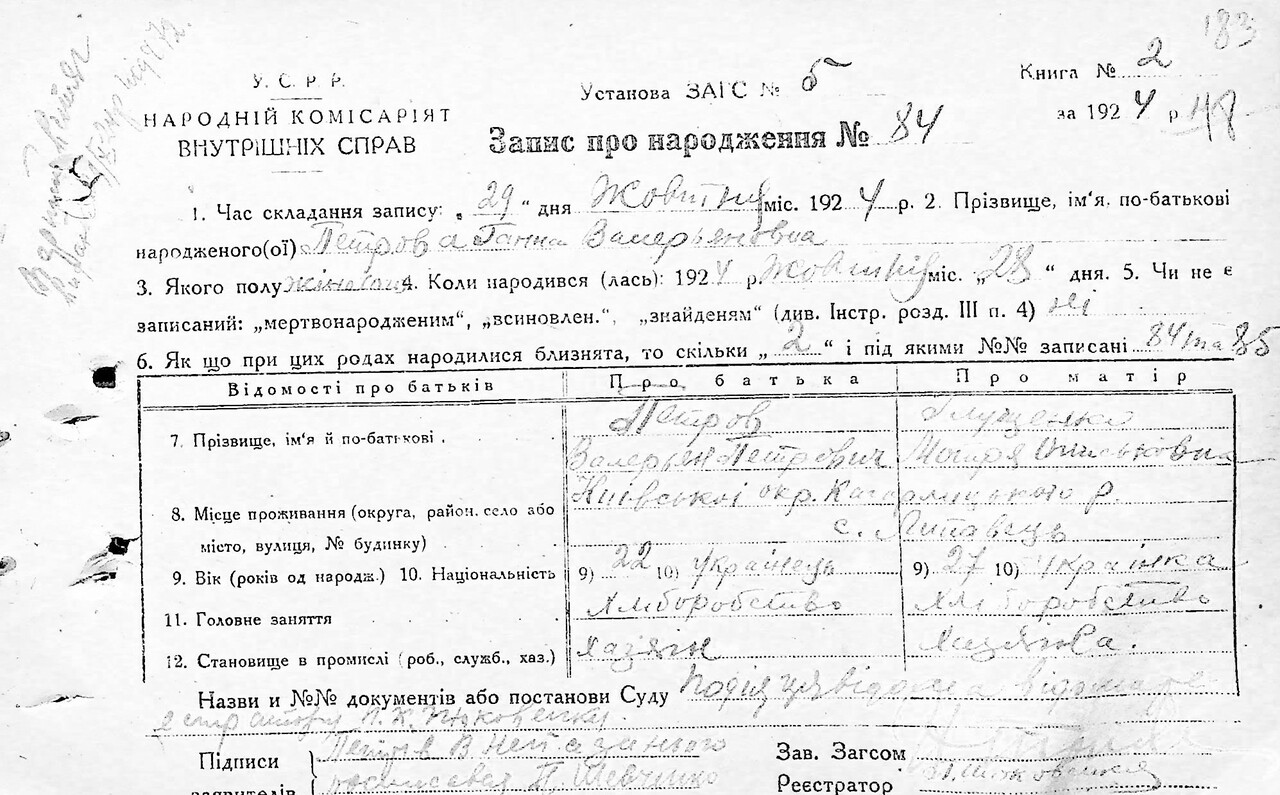 183
У. С. Р. Р.
НАРОДНІЙ КОМІСАРІЯТ
ВНУТРІШНІХ СПРАВ
Установа ЗАГС № 5
Книга № 2
за 1924 р. 48
Запис про народження № 84
1. Час складання запису: „29" дня Жовтня міс. 1924 р. 2. Прізвище, ім'я, по-батькові
народженого(ої) Петрова Ганна Валерьяновна
3. Якого полу жіночої 4. Коли народився (лась): 1924 р. Жовтня міс. „28" дня. 5. Чи не є
записаний: „мертвонародженим", „всиновлен.", „знайденям" (див. Інстр. розд. III п. 4) ні
6. Як що при цих родах народилися близнята, то скільки „2" і під якими №№ записані 84 та 85
Відомості про батьків Про батька Про матір
7. Прізвище, ім'я й по-батькові . Петров Глущенко
Валерьян Петрович Мотря
8. Місце проживання (округа, район, село або Київської окр. Кагарлицького р.
місто, вулиця, № будинку) с. Липовець
9. Вік (років од народж.) 10. Національність 9) 22 10) Українець 9) 27 10) Українка
11. Головне заняття Хліборобство Хліборобство
12. Становище в промислі (роб., служб., хаз.) Хазяїн Хазяйка.
Назви и №№ документів або постанови Суду Подія ця
Підписи Петров В.
заявителів П. Шевченко
Зав. Загсом
Реєстратор